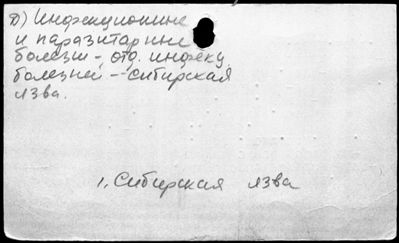 Д) Инфекционные
и паразитарные
болезни -, отд. инфекц.
болезней -- сибирская
язва.
1. Сибирская язва